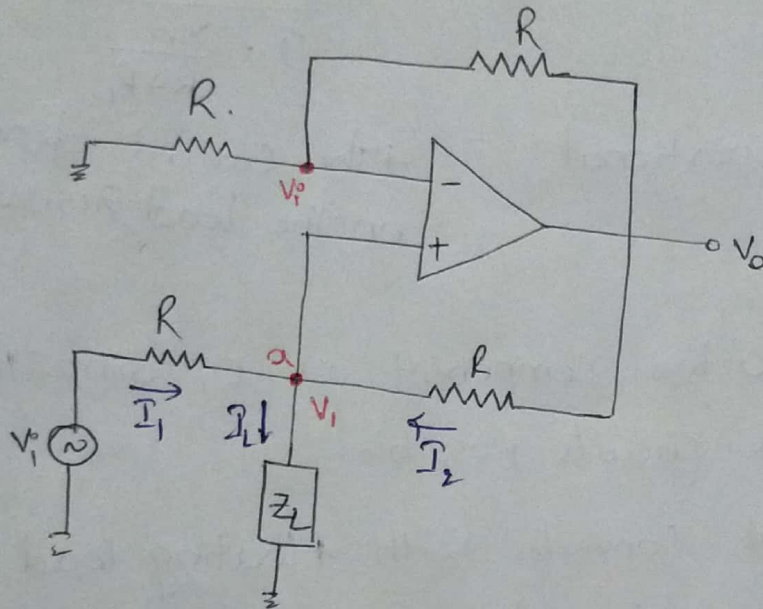 R
R.
Vi
-
+
Vo
R
a
R
V1
I1
IL
I2
Vi
~
ZL